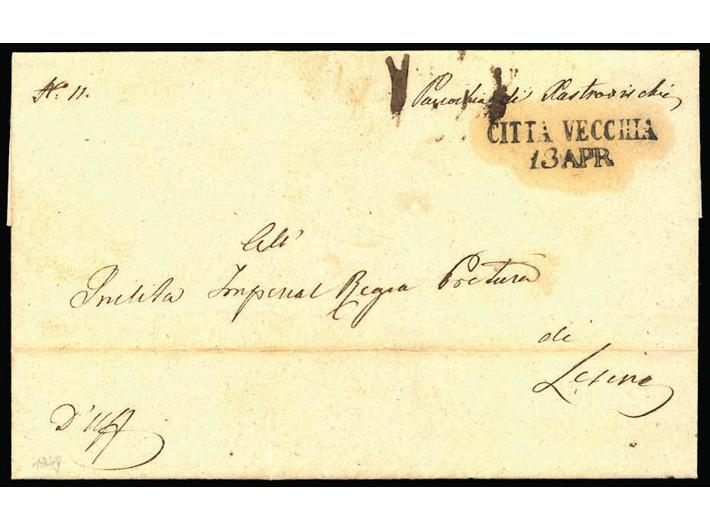 No. 11.
Parochia di Rastrovischie
CITTÀ VECCHIA
13 APR
All'
Inclita Imperial Regia Pretura
di
Lesina
D'Uff